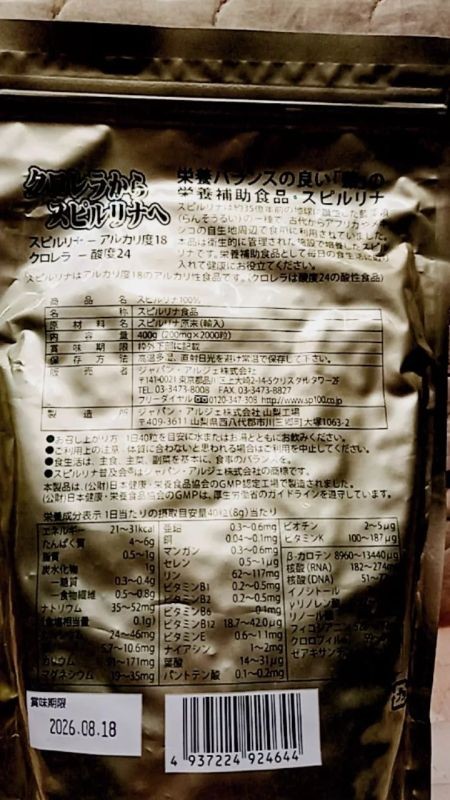 クロレラから
スピルリナへ
スピルリナ － アルカリ度18
クロレラ － 酸度24
栄養バランスの良い「
栄養補助食品・スピルリナ
スピルリナは約35億年前の地球に誕生した藍藻
(らんそうるい)の一種で、古代からアフリカやメキ
シコの自生地周辺で食用に利用されていました。
本品は衛生的に管理された施設で培養したスピル
リナです。栄養補助食品として毎日の食生活に取り
入れて健康にお役立てください。
スピルリナはアルカリ度18のアルカリ性食品です。(クロレラは酸度24の酸性食品)
商品名 スピルリナ100%
名称 スピルリナ食品
原材料名 スピルリナ原末(輸入)
内容量 400g (200mg×2000粒)
賞味期限 枠外下部に記載
保存方法 高温多湿、直射日光を避け常温で保存して下さい。
販売者 ジャパン・アルジェ株式会社
〒141-0021 東京都品川区上大崎2-14-5クリスタルタワー2F
TEL. 03-3473-8008 FAX 03-3473-8827
フリーダイヤル 0120-347-308 http://www.sp100.co.jp
製造所 ジャパン・アルジェ株式会社 山梨工場
〒409-3611 山梨県西八代郡市川三郷町大塚1063-2
●お召し上がり方 1日40粒を目安に水またはお湯とともにお飲みください。
●ご利用上の注意 体質に合わないと思われる場合はご利用を中止してください。
●食生活は、主食、主菜、副菜を基本に、食事のバランスを。
●スピルリナ普及会®はジャパン・アルジェ株式会社の商標です。
本製品は、(公財)日本健康・栄養食品協会のGMP認定工場で製造されました。
(公財)日本健康・栄養食品協会のGMPは、厚生労働省のガイドラインを遵守しています。
栄養成分表示 1日当たりの摂取目安量40粒(8g)当たり
エネルギー 21〜31kcal
たんぱく質 4〜6g
脂質 0.5〜1g
炭水化物 1g
－糖質 0.3〜0.4g
－食物繊維 0.5〜0.8g
ナトリウム 35〜52mg
(食塩相当量 0.1g)
24〜46mg
5.7〜10.6mg
カリウム 91〜171mg
マグネシウム 19〜35mg
亜鉛 0.3〜0.6mg
銅 0.04〜0.1mg
マンガン 0.3〜0.6mg
セレン 0.5〜1μg
リン 62〜117mg
ビタミンB1 0.2〜0.5mg
ビタミンB2 0.2〜0.5mg
ビタミンB6 0.1mg
ビタミンB12 18.7〜42.0μg
ビタミンE 0.6〜1.1mg
ナイアシン 1〜2mg
葉酸 14〜31μg
パントテン酸 0.1〜0.2mg
ビオチン 2〜5μg
ビタミンK 100〜187μg
β-カロテン 8960〜13440μg
核酸(RNA) 182〜274mg
核酸(DNA) 51〜
イノシトール
γリノレン酸
リノール酸
フィコシアニン
クロロフィル
ゼアキサンチン
賞味期限
2026.08.18
4 937224 924644